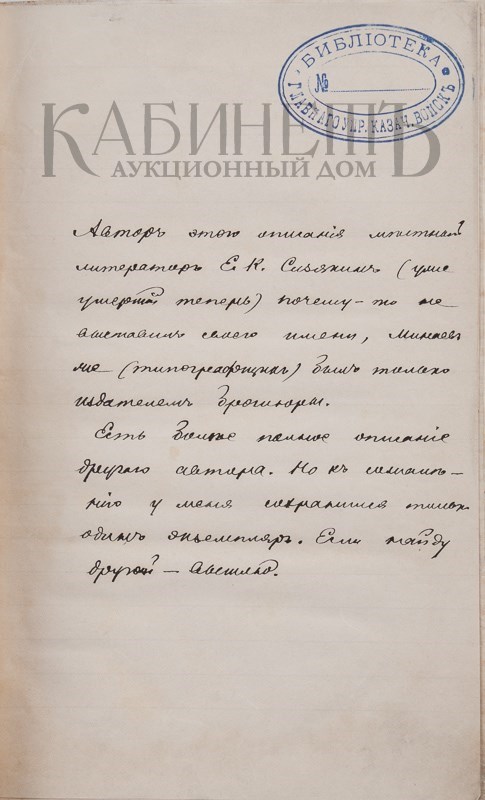 БИБЛІОТЕКА
№
ГЛАВНАГО УПР. КАЗАЧ. ВОЙСКЪ
КАБИНЕТЪ
АУКЦИОННЫЙ ДОМ
Авторъ этого описанія мѣстный
литераторъ Е. К. (уже
умершій теперь) почему-то не
выставилъ своего имени, Минаевъ
же (типографщикъ) былъ только
издателемъ брошюры.
Есть болѣе полное описаніе
другого автора. Но къ сожалѣ-
нію у меня сохранился только
одинъ экземпляръ. Если найду
другой – вышлю.